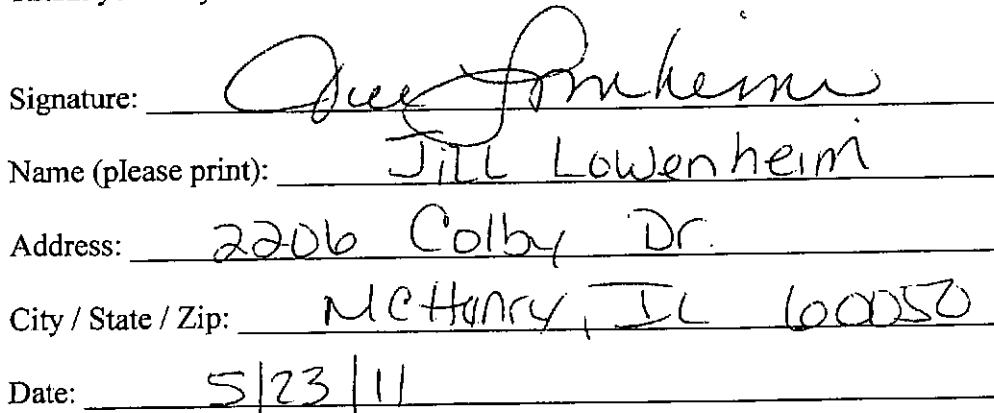 Signature: Jill Lowenheim
Name (please print): Jill Lowenheim
Address: 2206 Colby Dr.
City / State / Zip: McHenry, IL 60050
Date: 5/23/11